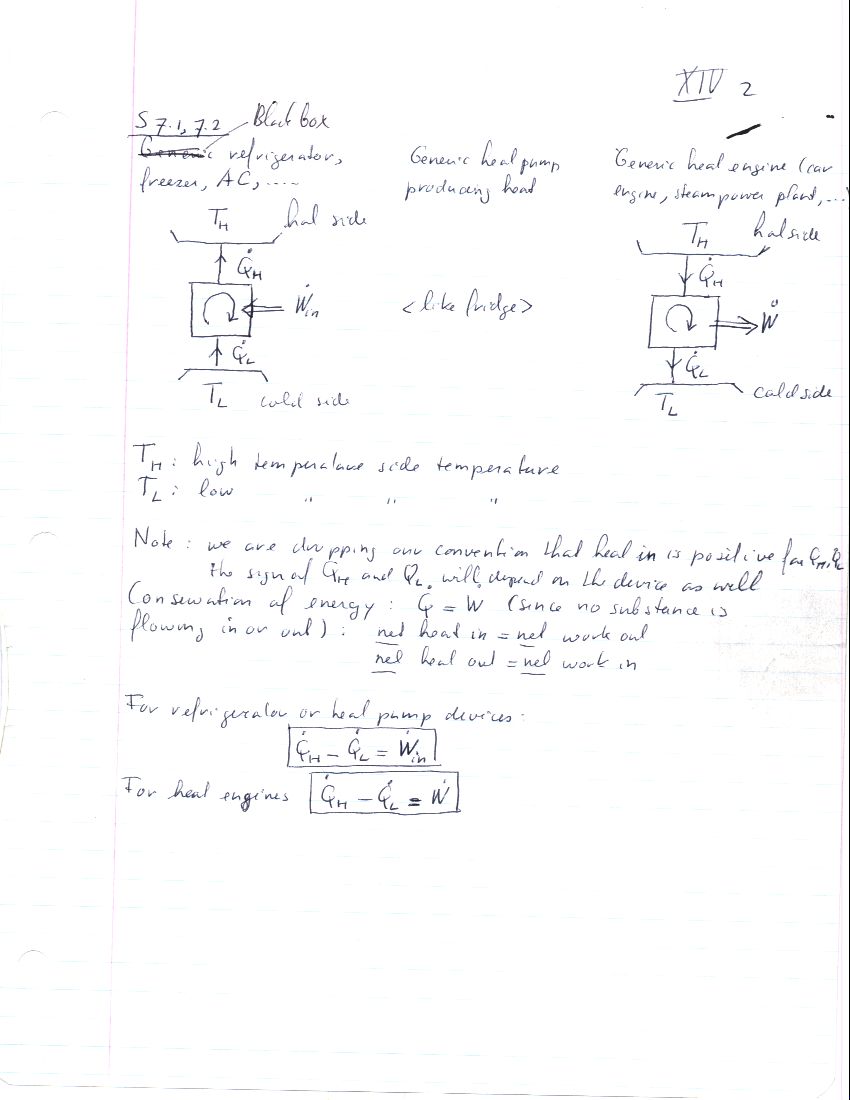 XIV 2
S 7.1, 7.2 Black box
Generic refrigerator,
freezer, AC, .....
Generic heat pump
producing heat
Generic heat engine (car
engine, steam power plant, ...)
T_H hot side
Q̇_H
Ẇ_in
Q̇_L
T_L cold side
<like fridge>
T_H hot side
Q̇_H
Ẇ
Q̇_L
T_L cold side
T_H : high temperature side temperature
T_L : low " " "
Note : we are dropping our convention that heat in is positive for Q_H, Q_L
the sign of Q_H and Q_L will depend on the device as well
Conservation of energy : Q = W (since no substance is
flowing in or out) : net heat in = net work out
net heat out = net work in
For refrigerator or heat pump devices:
Q̇_H - Q̇_L = Ẇ_in
For heat engines Q̇_H - Q̇_L = Ẇ